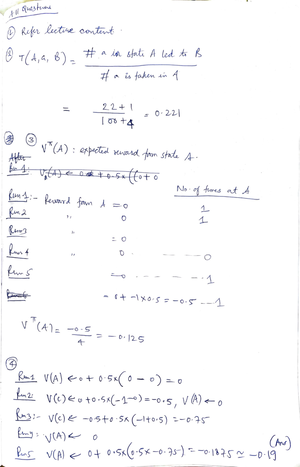 All Questions
① Refer lecture content.
② T(A,a,B) = # a in state A led to B
# a is taken in A
= 22+1
100+4 = 0.221
③ V^π(A) : expected reward from state A.
No. of times at A
Run 1:- Reward from A = 0 1
Run 2 " 0 1
Run 3 " = 0
Run 4 " 0 - - - 0
Run 5 = 0 - - - - - 1
= 0 + -1×0.5 = -0.5 - - 1
V^π(A) = -0.5
4 = -0.125
④
Run 1 V(A) ← 0 + 0.5×(0-0) = 0
Run 2: V(C) ← 0 + 0.5×(-1-0) = -0.5, V(A) ← 0
Run 3:- V(C) ← -0.5+0.5×(-1+0.5) = -0.75
Run 4: V(A) ← 0
(Ans)
Run 5 V(A) ← 0 + 0.5×(0.5×-0.75) = -0.1875 ≈ -0.19